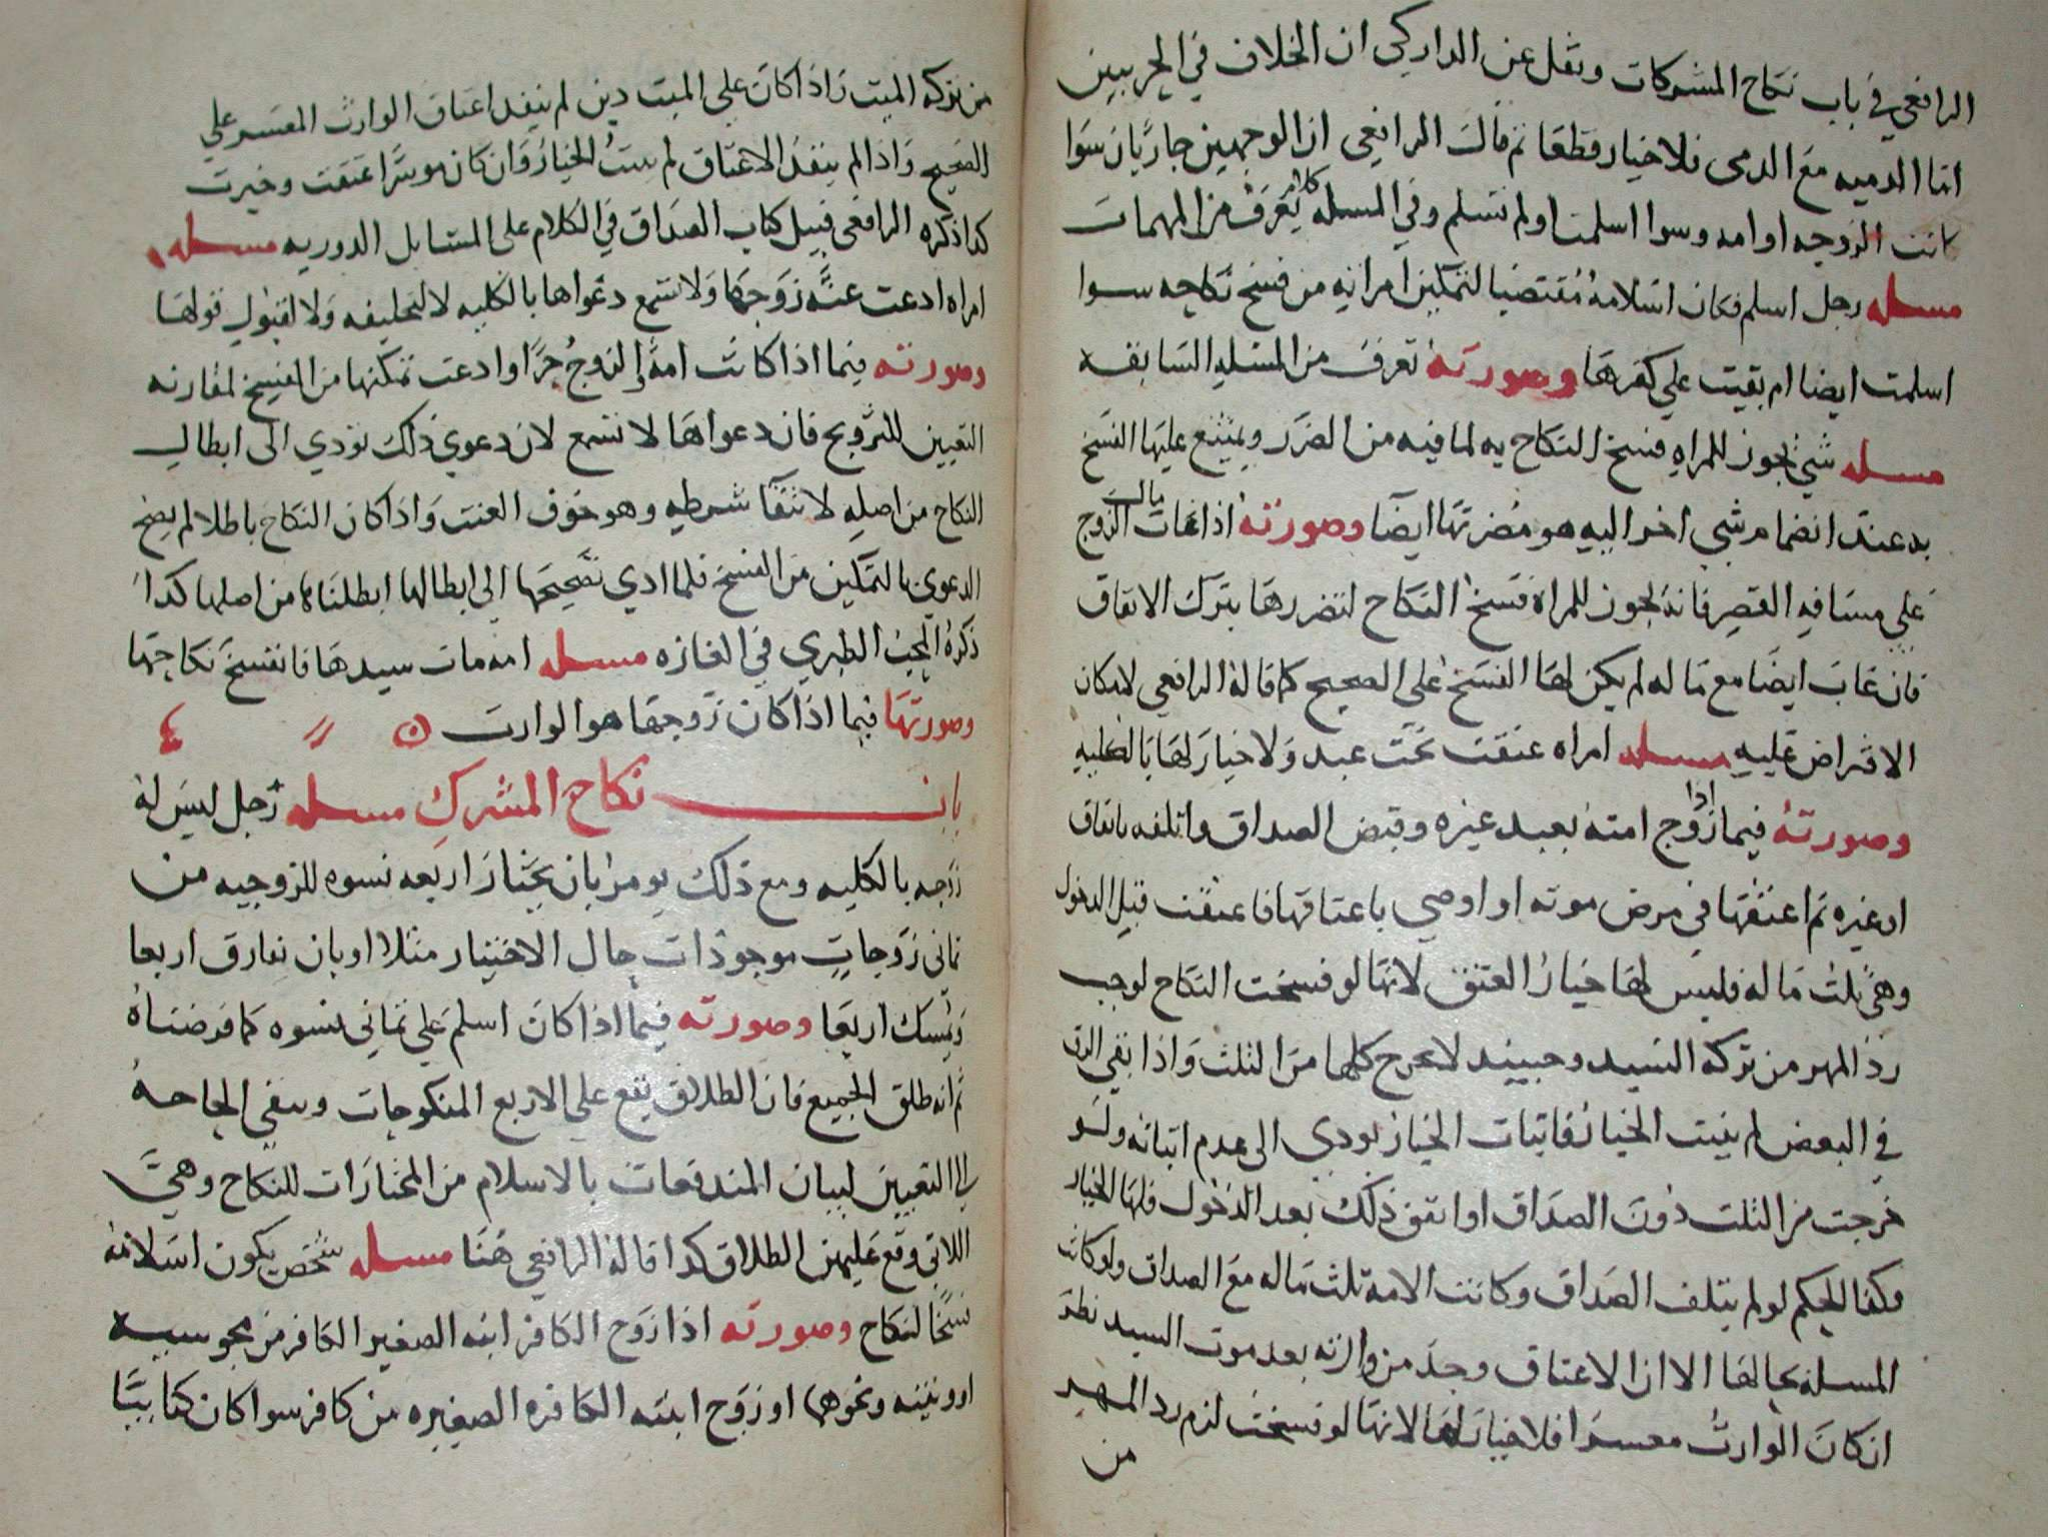 الرافعي في باب نكاح المشركات ونقل عن الداركي ان الخلاف في الحربيين
اما الدميه مع الدمى فلا خيار قطعا ثم قال الرافعي ان الوجهين جاريان سوا
كانت الزوجه او امه وسوا اسلمت او لم تسلم وفي المسله كلام يعرف من المهمات
مسله رجل اسلم فكان اسلامه مقتضيا لتمكين امراته من فسخ نكاحه سوا
اسلمت ايضا ام بقيت علي كفرها وصورته تعرف من المسله السابقه
مسله شي يجوز للمراه فسخ النكاح به لما فيه من الضرر ويمتنع عليها الفسخ
به عند انضمام شي اخر اليه هو مضرتها ايضا وصورته اذا غاب مال الزوج
علي مسافه القصر فانه يجوز للمراه فسخ النكاح لتضررها بترك الانفاق
فان غاب ايضا مع ماله لم يكن لها الفسخ على الصحيح كما قاله الرافعي لامكان
الاقتراض عليه مسله امراه عتقت تحت عبد ولا خيار لها بالكليه
وصورته فيما اذا زوج امته بعبد غيره وقبض الصداق واتلفه بانفاق
او غيره ثم اعتقها في مرض موته او اوصي باعتاقها فاعتقت قبل الدخول
وهي ثلث ماله فليس لها خيار العتق لانها لو فسخت النكاح لوجب
رد المهر من تركة السيد وحينيد لا يخرج كلها من الثلث واذا بقي الرق
في البعض لم يثبت الخيار فاثبات الخيار يودي الى عدم اثباته ولو
خرجت من الثلث دون الصداق او اتفق ذلك بعد الدخول فلها الخيار
وكذا الحكم لو لم يتلف الصداق وكانت الامة ثلث ماله مع الصداق ولو كانت
المسله بحالها الا ان الاعتاق وجد من وارثه بعد موت السيد نظر
ان كان الوارث معسرا فلا خيار لها لانها لو فسخت لزم رد المهر
من
من تركه الميت واذا كان علي الميت دين لم ينفد اعتاق الوارث المعسر علي
الصحيح واذا لم ينفد الاعتاق لم يثبت الخيار وان كان موسرا عتقت وخيرت
كذا ذكره الرافعى قبيل كتاب الصداق في الكلام على المسايل الدوريه مسله
امراه ادعت عنة زوجها ولا تسمع دعواها بالكليه لا لتحليفه ولا لقبول قولها
وصورته فيما اذا كانت امة والزوج حرا وادعت تمكنها من الفسخ لمقارنه
التعيين للتزويج فان دعواها لا تسمع لان دعوي ذلك تودي الى ابطال
النكاح من اصله لانتفآ شرطه وهو خوف العنت واذا كان النكاح باطلا لم يصح
الدعوي بالتمكين من الفسخ فلما ادي تصحيحها الي ابطالها ابطلناها من اصلها كدا
ذكره المحب الطبري في الغازه مسله امه مات سيدها فانفسخ نكاحها
وصورتها فيما اذا كان زوجها هو الوارث
باب نكاح المشرك مسله رجل ليس له
زوجه بالكليه ومع ذلك يومر بان يختار اربعه نسوه للزوجيه من
ثماني زوجات موجودات حال الاختيار مثلا او بان يفارق اربعا
ويمسك اربعا وصورته فيما اذا كان اسلم علي ثماني نسوه كما فرضناه
ثم انه طلق الجميع فان الطلاق يقع علي الاربع المنكوحات ويبقي الحاجه
الي التعيين لبيان المندفعات بالاسلام من المختارات للنكاح وهي
اللاتي وقع عليهن الطلاق كدا قاله الرافعي هنا مسله شخص يكون اسلامه
فسخا لنكاح وصورته اذا زوج الكافر ابنه الصغير الكافر من مجوسيه
او وثنيه ونحوها او زوج ابنته الكافره الصغيره من كافر سوا كان كتابيا